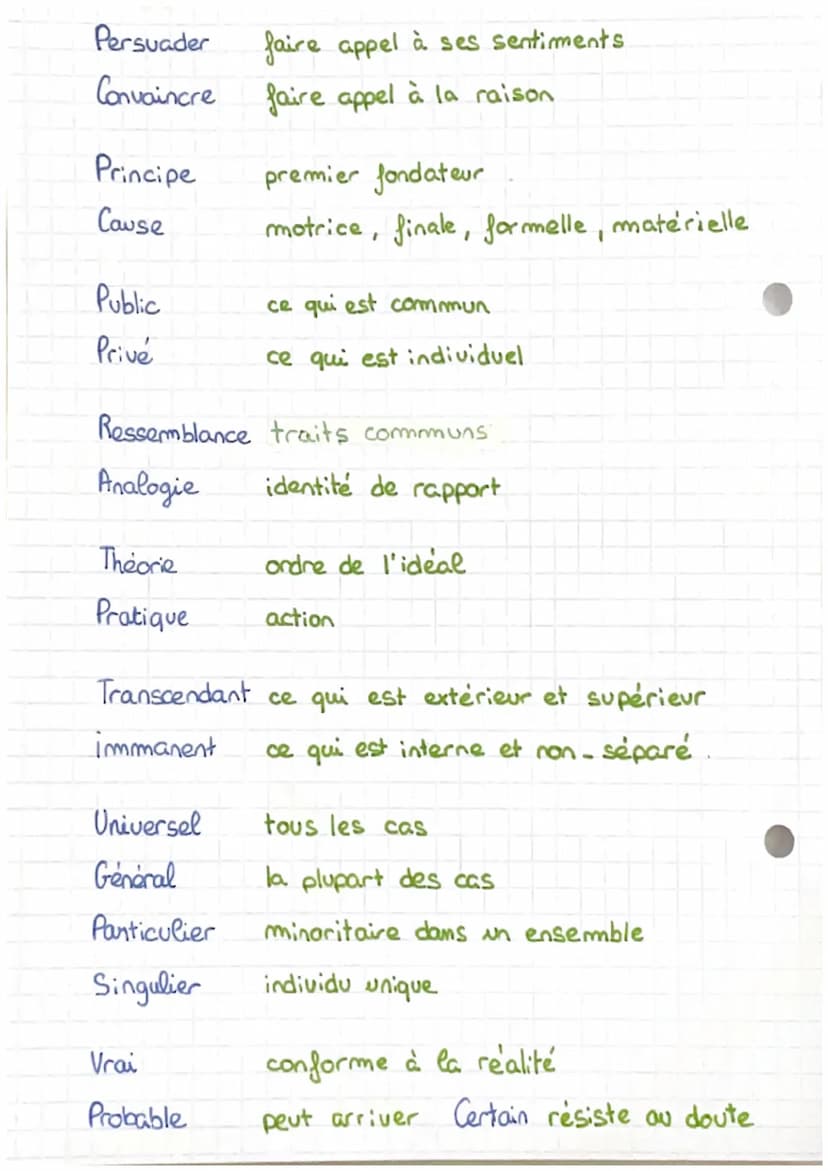 Persuader faire appel à ses sentiments
Convaincre faire appel à la raison
Principe premier fondateur
Cause motrice, finale, formelle, matérielle
Public ce qui est commun
Privé ce qui est individuel
Ressemblance traits communs
Analogie identité de rapport
Théorie ordre de l'idéal
Pratique action
Transcendant ce qui est extérieur et supérieur
immanent ce qui est interne et non-séparé.
Universel tous les cas
Général la plupart des cas
Particulier minoritaire dans un ensemble
Singulier individu unique
Vrai conforme à la réalité
Probable peut arriver Certain résiste au doute